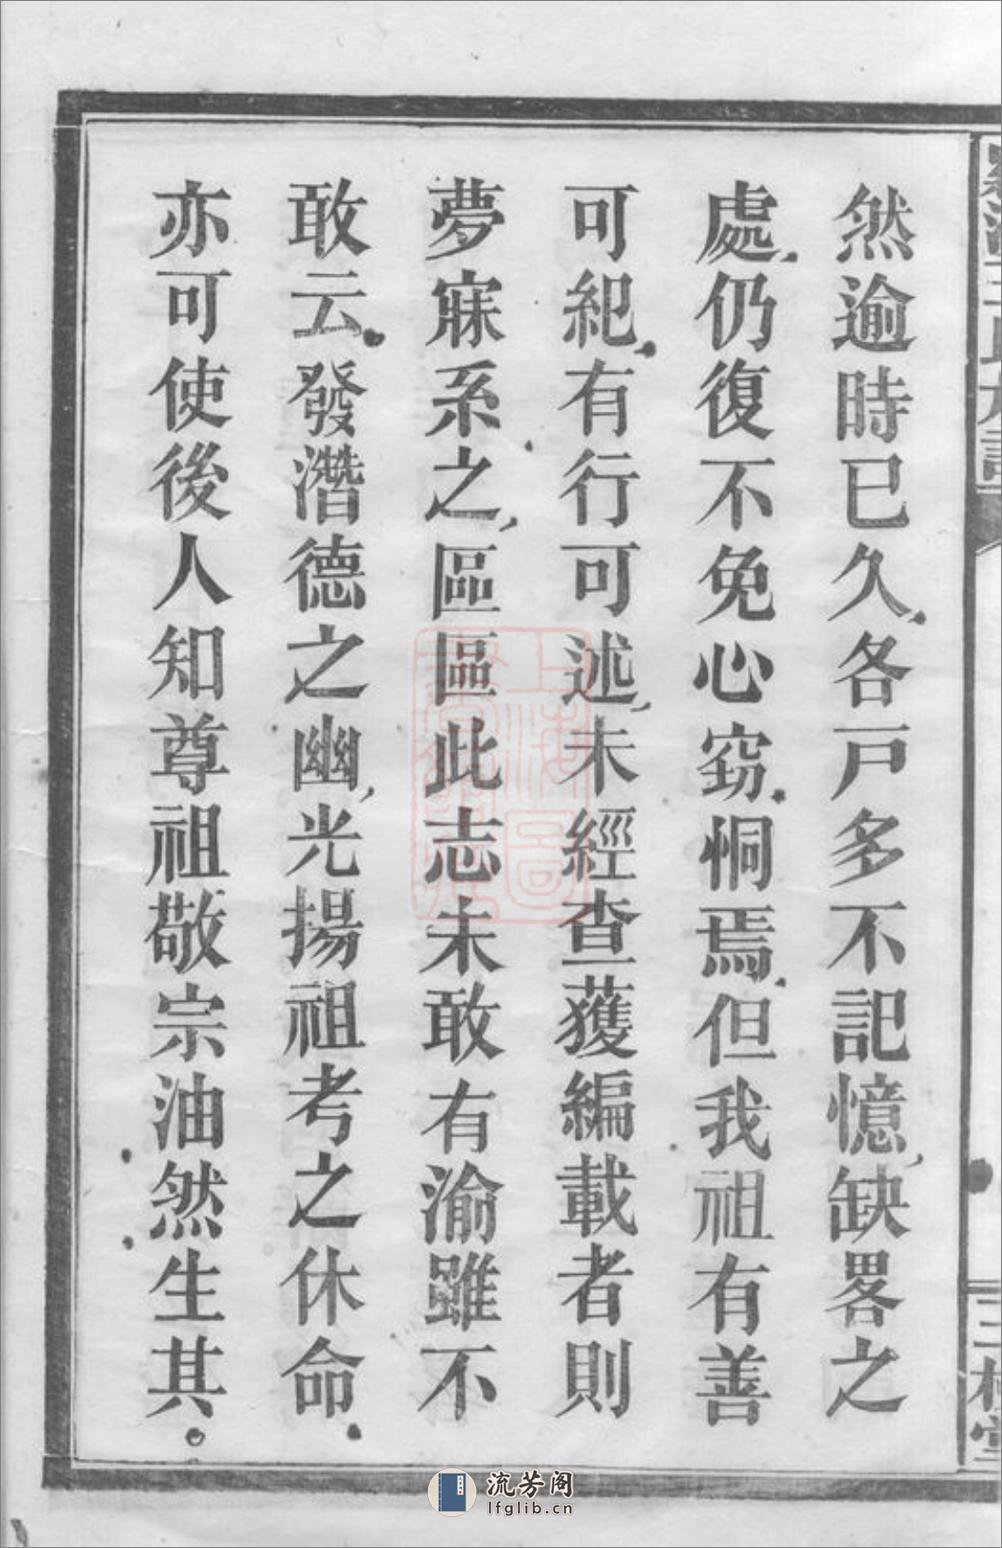 然逾時已久各戸多不記憶缺畧之
處仍復不免心窃恫焉但我祖有善
可紀有行可述未經查獲編載者則
夢寐系之區區此志未敢有渝雖不
敢云發潛德之幽光揚祖考之休命
亦可使後人知尊祖敬宗油然生其
三槐堂
流芳阁
lfglib.cn